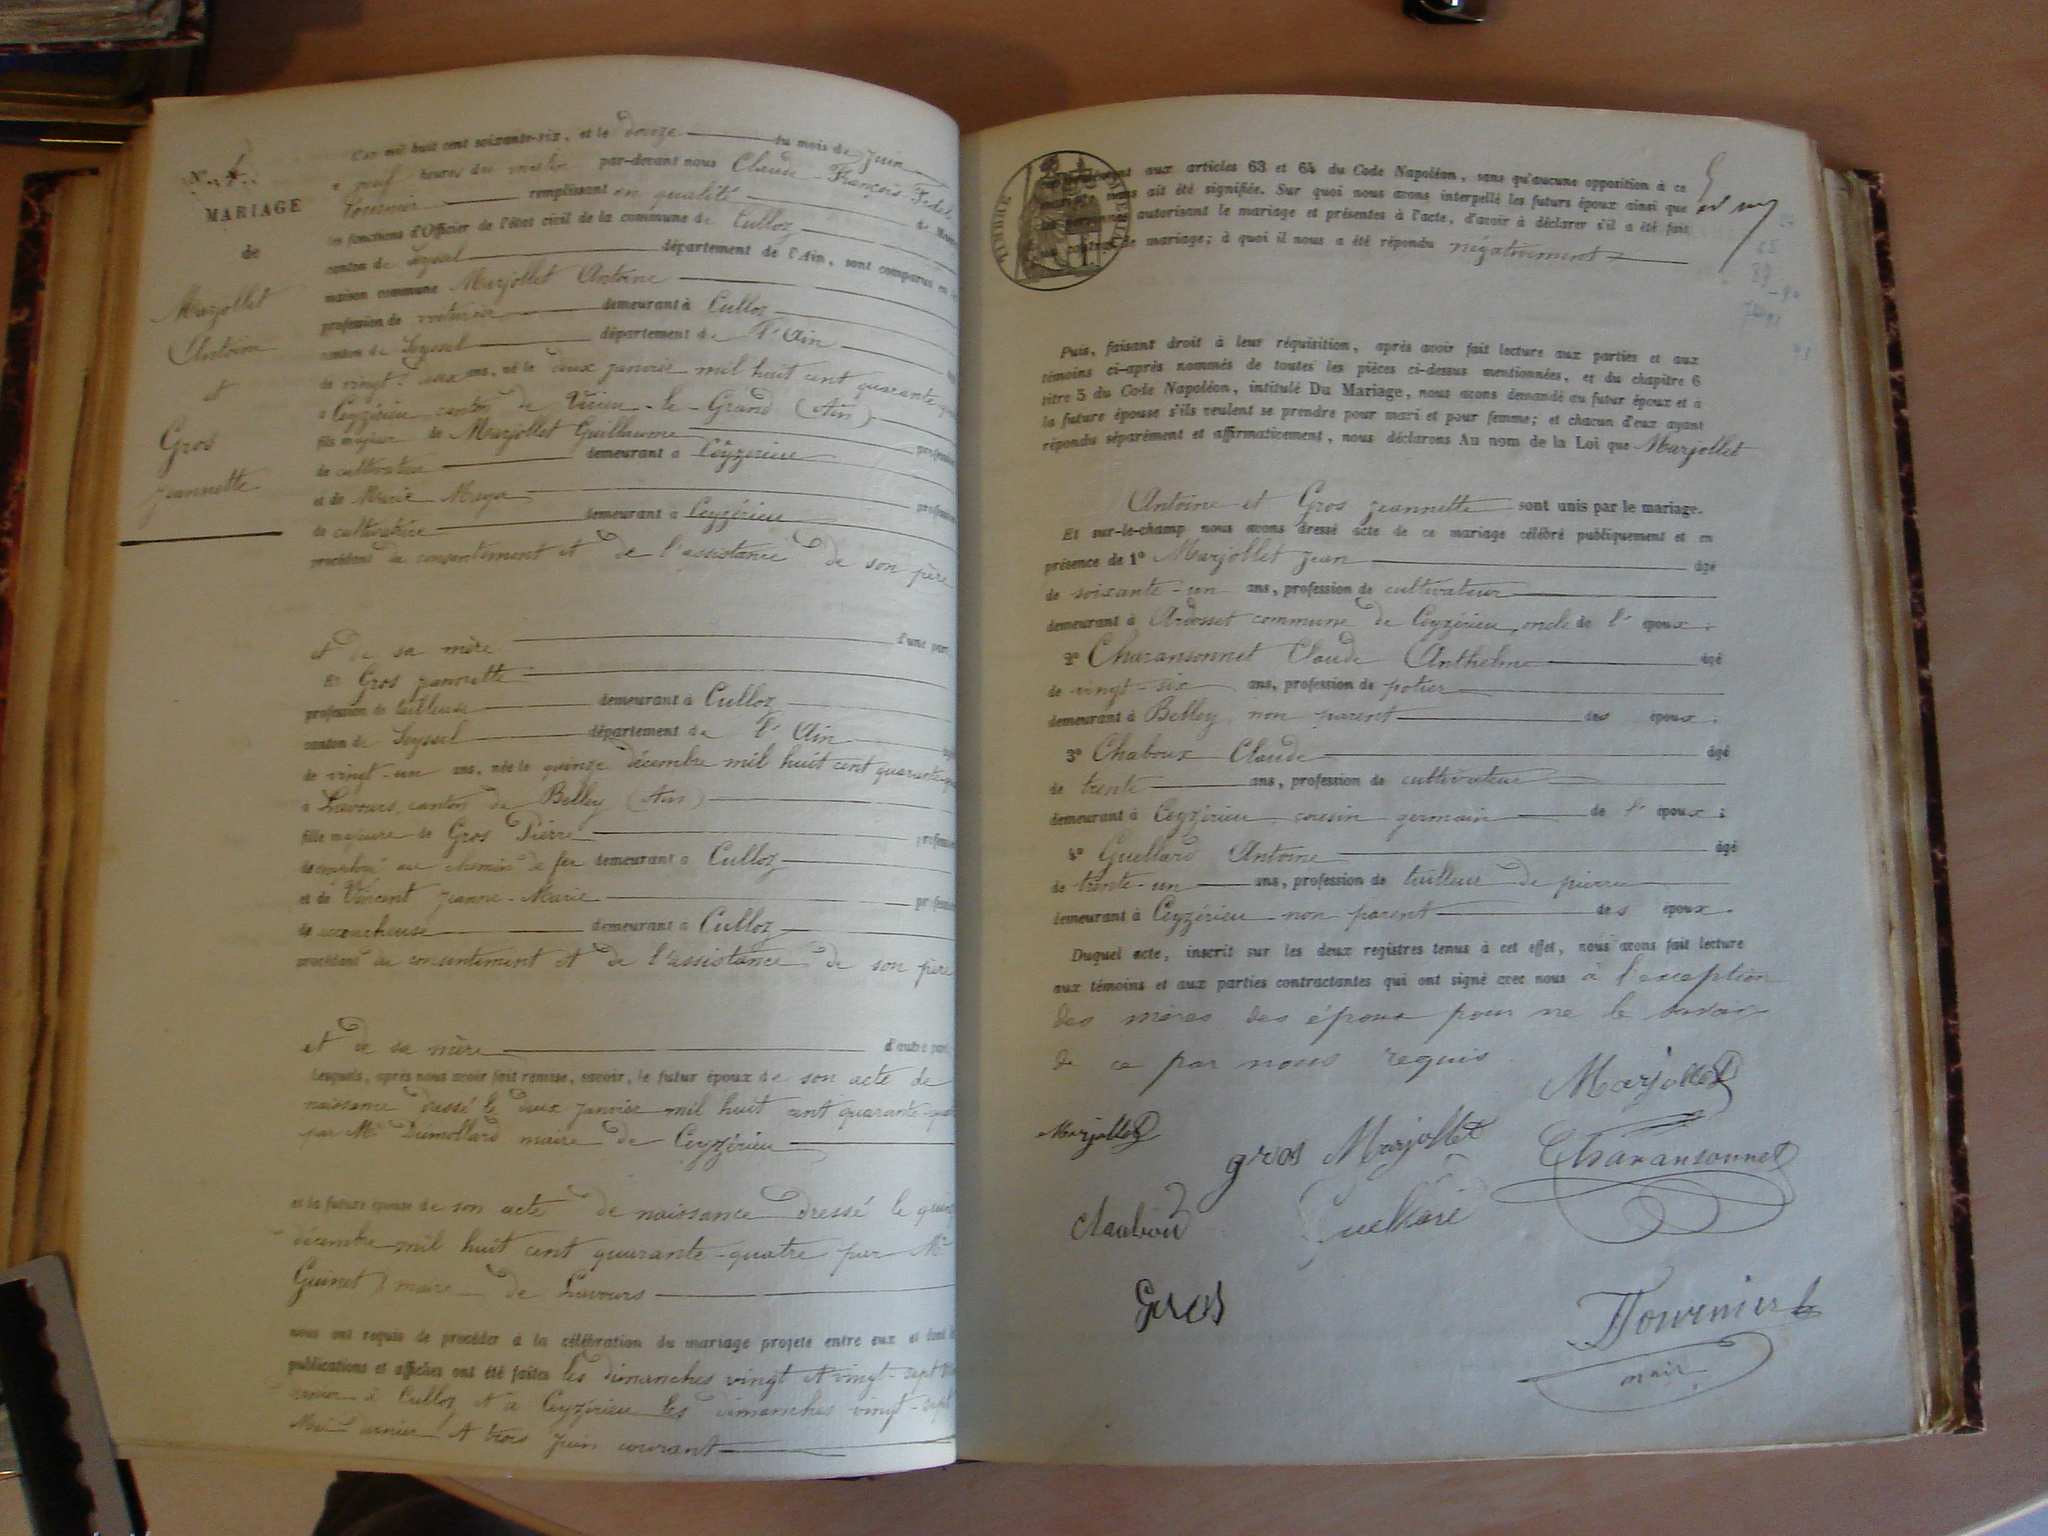 N° 4.
MARIAGE
de
Marjollet
Antoine
et
Gros
Jeannette
L'an mil huit cent soixante-six, et le douze du mois de Juin
à neuf heures du matin par-devant nous Claude-François-Fidèle
Fournier remplissant en qualité de Maire
les fonctions d'Officier de l'état civil de la commune de Culloz
canton de Seyssel département de l'Ain, sont comparus en la
maison commune Marjollet Antoine
profession de demeurant à Culloz
canton de Seyssel département de l'Ain
de vingt-deux ans, né le deux janvier mil huit cent quarante
à Ceyzérieu canton de Virieu-le-Grand (Ain)
fils majeur de Marjollet Guillaume profession
de cultivateur demeurant à Ceyzérieu
et de Marie Moya profession
de cultivatrice demeurant à Ceyzérieu
procédant du consentement et de l'assistance de son père
et de sa mère d'une part,
Et Gros Jeannette
profession de tailleuse demeurant à Culloz
canton de Seyssel département de l'Ain
de vingt-un ans, née le quinze décembre mil huit cent quarante
à Lavours, canton de Belley (Ain)
fille majeure de Gros Pierre profession
de employé au chemin de fer demeurant à Culloz
et de Vincent Jeanne-Marie profession
de accoucheuse demeurant à Culloz
procédant du consentement et de l'assistance de son père
et de sa mère d'autre part,
Lesquels, après nous avoir fait remise, savoir, le futur époux de son acte de
naissance dressé le deux janvier mil huit cent quarante-quatre
par Mr Dumollard maire de Ceyzérieu
et la future épouse de son acte de naissance dressé le quinze
décembre mil huit cent quarante-quatre par Mr
Guinet maire de Lavours
nous ont requis de procéder à la célébration du mariage projeté entre eux et dont les
publications et affiches ont été faites les dimanches vingt et vingt-sept Mai
dernier à Culloz et à Ceyzérieu les dimanches vingt-sept
Mai dernier et trois juin courant
TIMBRE
conformément aux articles 63 et 64 du Code Napoléon, sans qu'aucune opposition à ce
mariage nous ait été signifiée. Sur quoi nous avons interpellé les futurs époux ainsi que
les personnes autorisant le mariage et présentes à l'acte, d'avoir à déclarer s'il a été fait
contrat de mariage; à quoi il nous a été répondu négativement
Puis, faisant droit à leur réquisition, après avoir fait lecture aux parties et aux
témoins ci-après nommés de toutes les pièces ci-dessus mentionnées, et du chapitre 6
titre 5 du Code Napoléon, intitulé Du Mariage, nous avons demandé au futur époux et à
la future épouse s'ils veulent se prendre pour mari et pour femme; et chacun d'eux ayant
répondu séparément et affirmativement, nous déclarons Au nom de la Loi que Marjollet
Antoine et Gros Jeannette sont unis par le mariage.
Et sur-le-champ nous avons dressé acte de ce mariage célébré publiquement et en
présence de 1° Marjollet Jean âgé
de soixante-un ans, profession de cultivateur
demeurant à Ardosset commune de Ceyzérieu, oncle de l'époux;
2° Charansonnet Claude Anthelme âgé
de vingt-six ans, profession de potier
demeurant à Belley non parent des époux;
3° Chaboux Claude âgé
de trente ans, profession de cultivateur
demeurant à Ceyzérieu cousin germain de l'époux;
4° Guellard Antoine âgé
de trente-un ans, profession de tailleur de pierre
demeurant à Ceyzérieu non parent des époux.
Duquel acte, inscrit sur les deux registres tenus à cet effet, nous avons fait lecture
aux témoins et aux parties contractantes qui ont signé avec nous à l'exception
des mères des époux pour ne le savoir
de ce par nous requis.
Marjollet
Marjollet gros Marjollet Charansonnet
Chabou
Gros
Fournier
maire